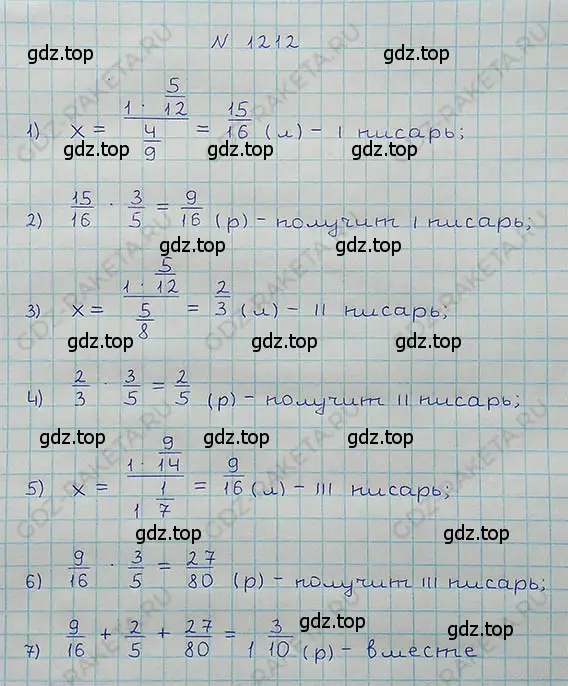 N 1212
gdz.top gdz.top
1) x = (1 · 5/12)/(4/9) = 15/16 (л) - I писарь;
gdz.top gdz.top
2) 15/16 · 3/5 = 9/16 (р) - получит I писарь;
gdz.top gdz.top
3) x = (1 · 5/12)/(5/8) = 2/3 (л) - II писарь;
gdz.top gdz.top
4) 2/3 · 3/5 = 2/5 (р) - получит II писарь;
gdz.top gdz.top
5) x = (1 · 9/14)/(1 1/7) = 9/16 (л) - III писарь;
gdz.top gdz.top
6) 9/16 · 3/5 = 27/80 (р) - получит III писарь;
gdz.top gdz.top
7) 9/16 + 2/5 + 27/80 = 1 3/10 (р) - вместе
GDZ-RAKETA.RU